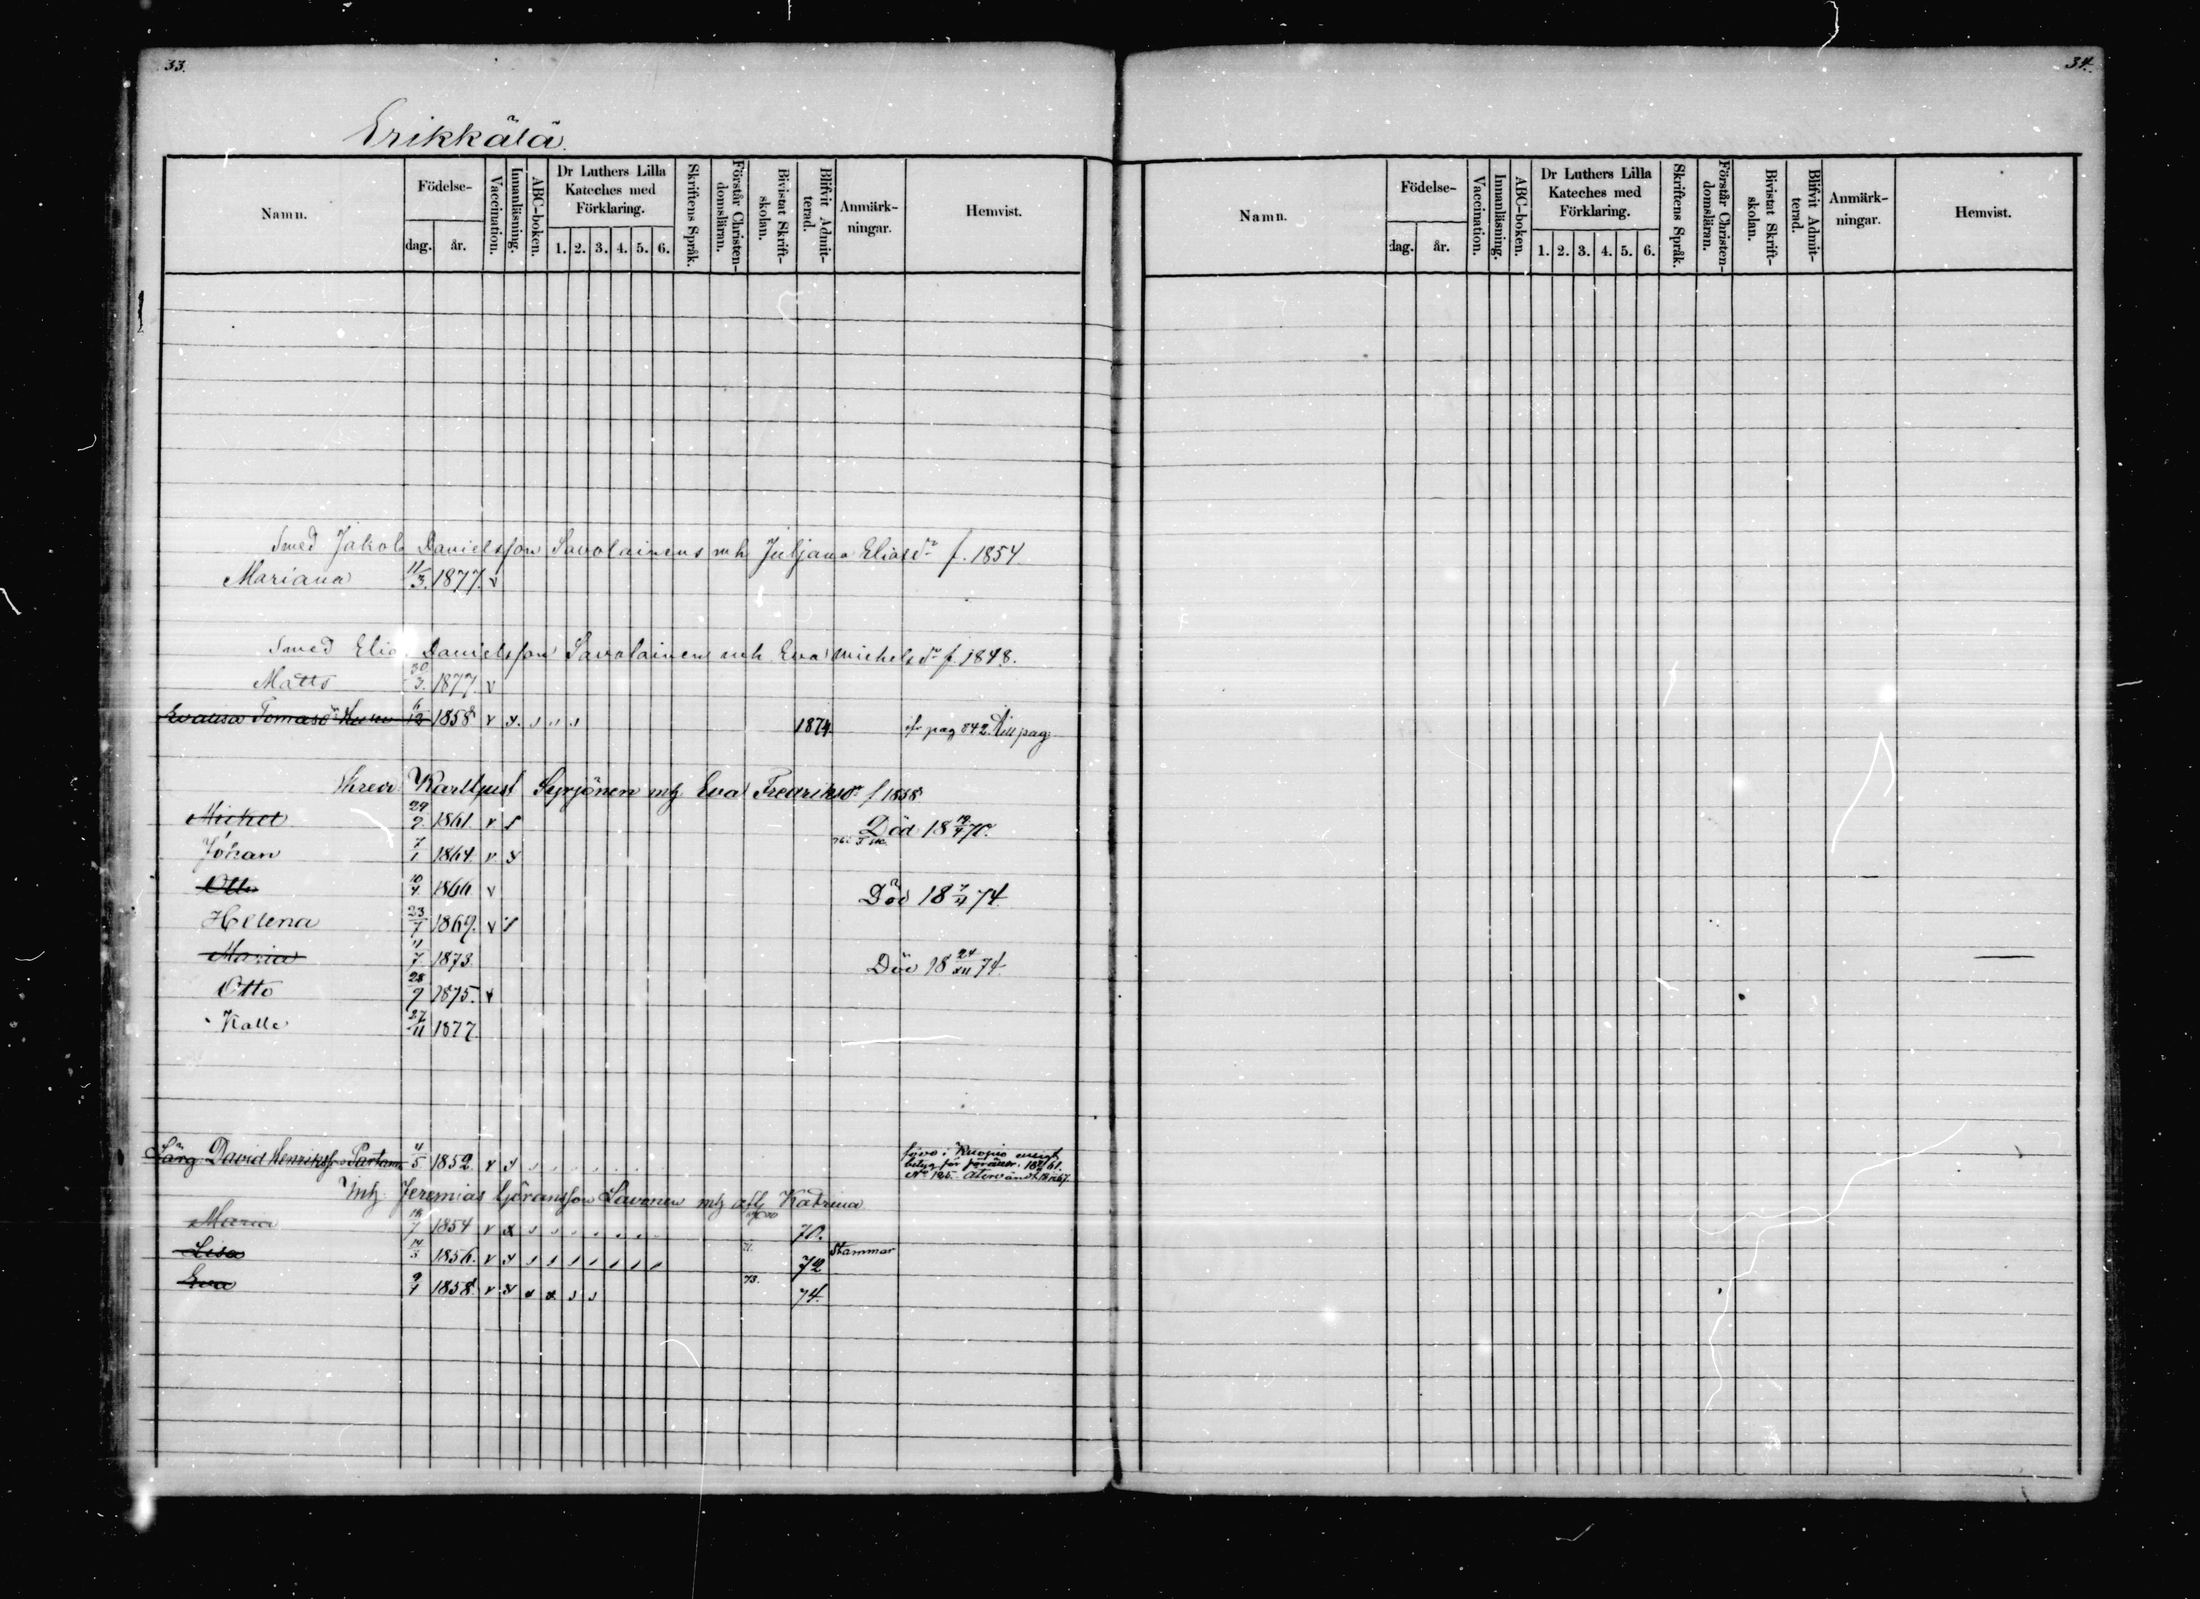 33.
Erikkälä.
Namn. Födelse- dag. år. Vaccination. Innanläsning. ABC-boken. Dr Luthers Lilla Kateches med Förklaring. 1. 2. 3. 4. 5. 6. Skriftens Språk. Förstår Christendomsläran. Bivistat Skriftskolan. Blifvit Admitterad. Anmärkningar. Hemvist.
Smed Jakob Danielsson Savolainens mh Juljana Eliasdr f. 1854.
Mariana 11/3. 1877. v
Smed Danielsson Savolainens mh Eva Michelsdr f. 1848.
Matts 30/3. 1877. v
Tomasdr 6/12 1858 v 1874. pag 842. Till pag:
Syrjönen mh Eva Fredriksdr f 1838
Michel 29/9. 1861. v Död 18 70.
Johan 7/1 1864. v
Otto 10/4 1866 v Död 18 7/4 74.
Helena 23/7 1869. v
Maria 11/7 1873. Död 18 24/XII 74.
Otto 28/9 1875. v
Kalle 27/11 1877.
Lärg. David Henrikss. 4/5 1852. v i Kuopio betyg för
Jeremias Göransson Savonen Katrina
Maria 18/7 1854 v x 70.
Lisa 14/3 1856. v 71. 72 Stammar
Eva 9/1 1858. v 73. 74.
34.
Namn. Födelse- dag. år. Vaccination. Innanläsning. ABC-boken. Dr Luthers Lilla Kateches med Förklaring. 1. 2. 3. 4. 5. 6. Skriftens Språk. Förstår Christendomsläran. Bivistat Skriftskolan. Blifvit Admitterad. Anmärkningar. Hemvist.